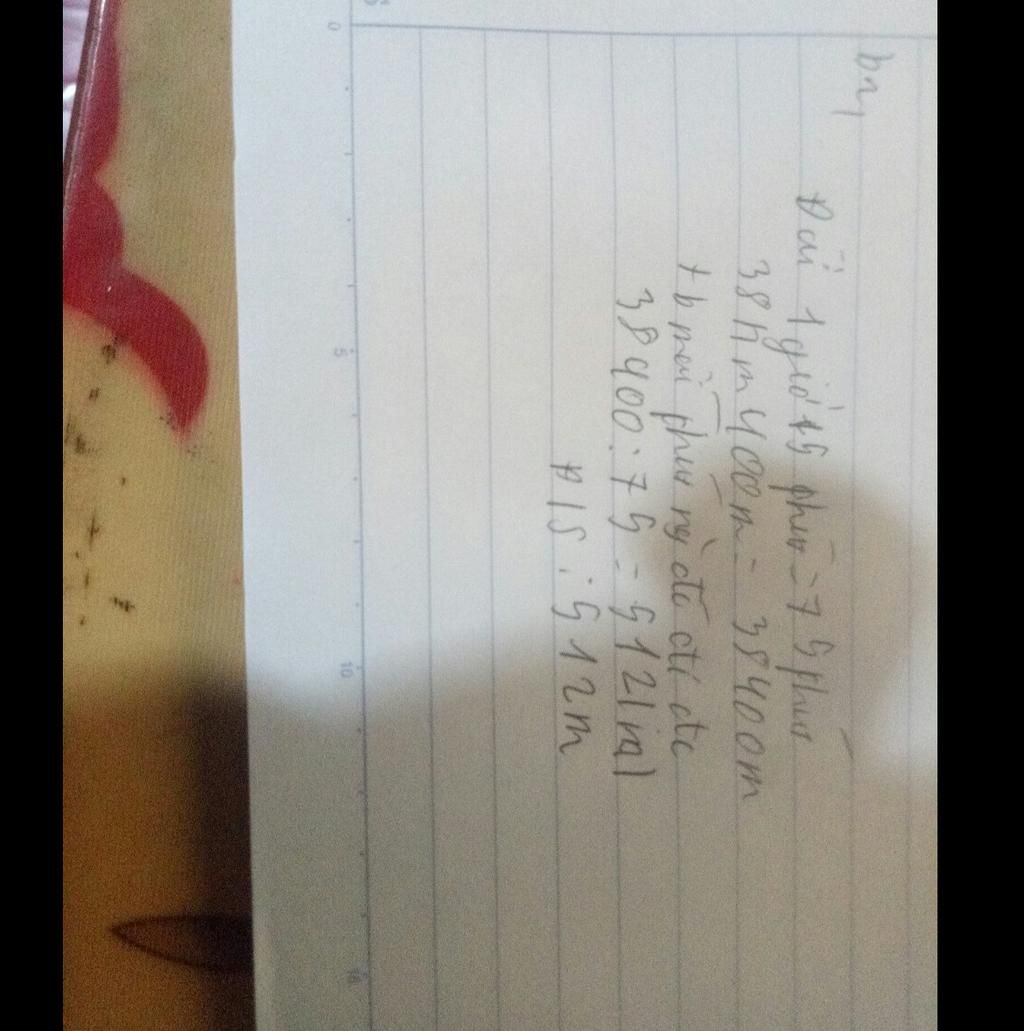 b4
Đổi 1 giờ 15 phút = 75 phút
38km 400m = 38400m
tb mỗi phút ng đó đi đc
38400:75 = 512(m)
Đ/S: 512m
0
5
10